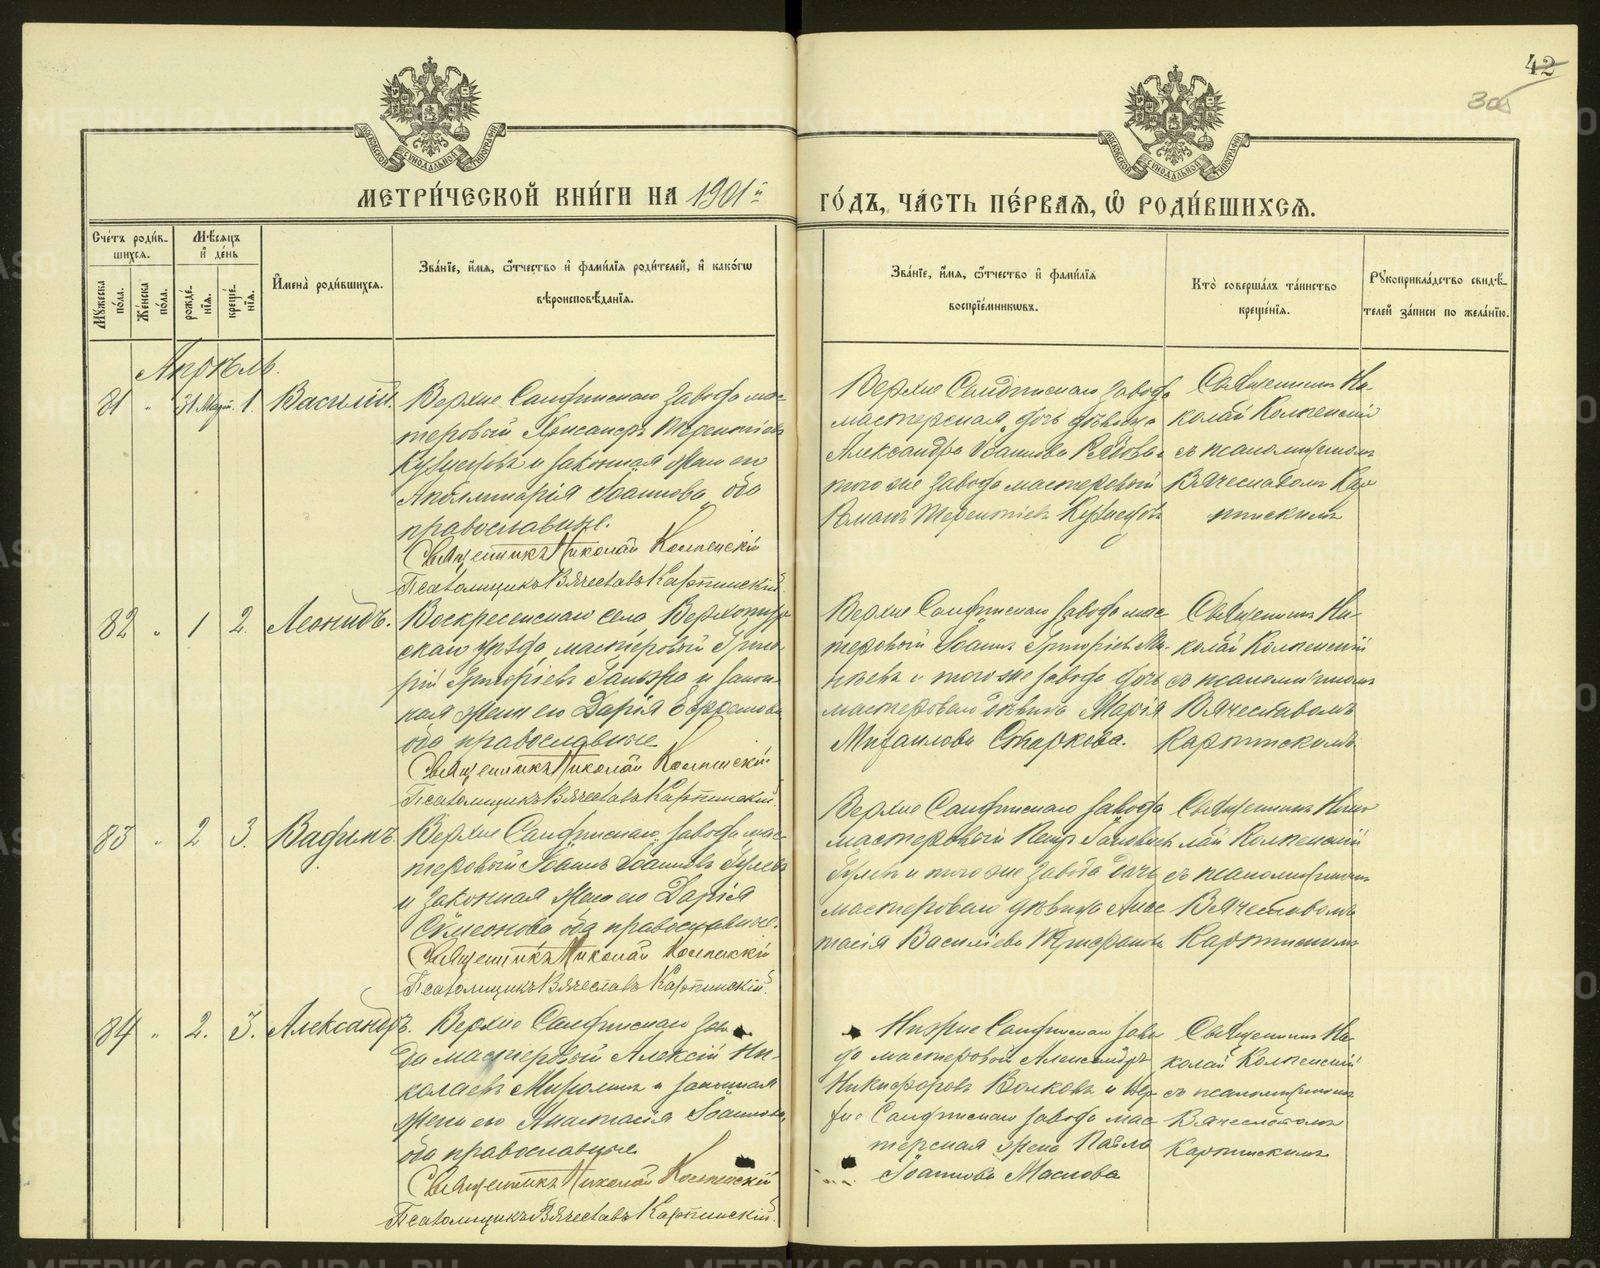 42
305
МОСКОВСКОЙ СѴНОДАЛЬНОЙ ТИПОГРАФІИ
МОСКОВСКОЙ СѴНОДАЛЬНОЙ ТИПОГРАФІИ
МЕТРИ́ЧЕСКОЙ КНИ́ГИ НА 1901й
ГО́ДЪ, ЧА́СТЬ ПЕ́РВАѦ, Ѡ҆ РОДИ́ВШИХСѦ.
Сче́тъ роди́в-
шихсѧ.
Мѣ́сѧцъ
и҆ де́нь
Мꙋ́жеска по́ла.
Же́нска по́ла.
рожде́-
нїѧ.
креще́-
нїѧ.
И҆мена̀ роди́вшихсѧ.
Зва́нїе, и҆́мѧ, ѻ҆́тчество и҆ фами́лїѧ роди́телей, и҆ како́гѡ
вѣроисповѣ́данїѧ.
Зва́нїе, и҆́мѧ, ѻ҆́тчество и҆ фами́лїѧ
воспрїе́мникѡвъ.
Кто̀ соверша́лъ та́инство
креще́нїѧ.
Рꙋкоприкла́дство свидѣ́-
телей за́писи по жела́нїю.
Апрѣль.
81 " 31 Март. 1. Василій.
Верхне Салдинскаго завода мас-
теровый Александръ Терентіевъ
Кузнецовъ и законная жена его
Аполлинарія Іоаннова, оба
православные.
Священникъ Николай Колпенскій
Псаломщикъ Вячеславъ Карпинскій.
Верхне Салдинскаго завода
мастерская дочь дѣвица
Александра Іоаннова Рябова и
того же завода мастеровой
Романъ Терентіевъ Кузнецовъ
Священникъ Ни-
колай Колпенскій
съ псаломщикомъ
Вячеславомъ Кар-
пинскимъ
82 " 1 2. Леонидъ.
Воскресенскаго села Верхотур-
скаго уѣзда мастеровый Григо-
рій Григоріевъ и закон-
ная жена его Дарія Ефремова
оба православные
Священникъ Николай Колпенскій
Псаломщикъ Вячеславъ Карпинскій.
Верхне Салдинскаго завода мас-
теровый Іоаннъ Григоріевъ
и того же завода дочь
мастероваго дѣвица Марія
Михаилова Старкова.
Священникъ Ни-
колай Колпенскій
съ псаломщикомъ
Вячеславомъ
Карпинскимъ
83 " 2 3. Вадимъ.
Верхне Салдинскаго завода мас-
теровый Іоаннъ Іоанновъ Гулевъ
и законная жена его Дарія
Сѵмеонова оба православные.
Священникъ Николай Колпенскій
Псаломщикъ Вячеславъ Карпинскій.
Верхне Салдинскаго завода
мастеровый Петръ
Гулевъ и того же завода дочь
мастероваго дѣвица Анас-
тасія Василіева
Священникъ Нико-
лай Колпенскій
съ псаломщикомъ
Вячеславомъ
Карпинскимъ
84 " 2. 3. Александръ.
Верхне Салдинскаго заво-
да мастеровый Алексій Ни-
колаевъ и законная
жена его Анастасія Іоаннова,
оба православные
Священникъ Николай Колпенскій
Псаломщикъ Вячеславъ Карпинскій.
Нижне Салдинскаго заво-
да мастеровой Александръ
Никифоровъ Волковъ и Вер-
хне Салдинскаго завода мас-
терская жена
Іоаннова Маслова
Священникъ Ни-
колай Колпенскій
съ псаломщикомъ
Вячеславомъ
Карпинскимъ
METRIKI.GASO-URAL.RU